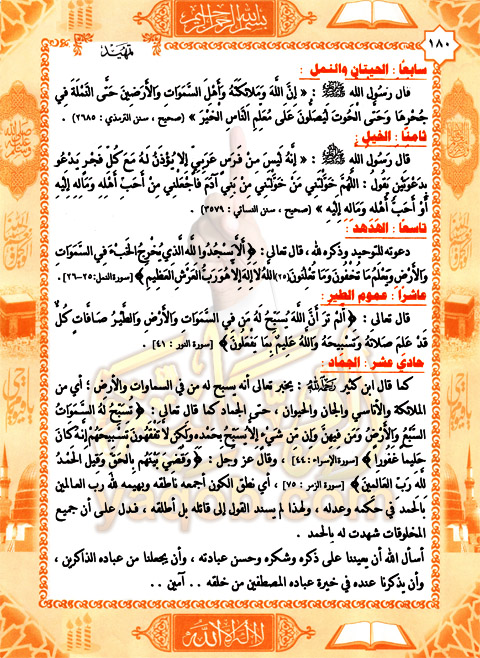 بسم الله الرحمن الرحيم
١٨٠
تمهيد
سابعًا : الحيتان والنمل :
قال رسول الله ﷺ : « إِنَّ اللَّهَ وَمَلائِكَتَهُ وَأَهْلَ السَّمَوَاتِ وَالأَرَضِينَ حَتَّى النَّمْلَةَ فِي
جُحْرِهَا وَحَتَّى الْحُوتَ لَيُصَلُّونَ عَلَى مُعَلِّمِ النَّاسِ الْخَيْرَ » (صحيح ، سنن الترمذي : ٢٦٨٥) .
ثامنًا : الخيل :
قال رسول الله ﷺ : « إِنَّهُ لَيْسَ مِنْ فَرَسٍ عَرَبِيٍّ إِلا يُؤْذَنُ لَهُ مَعَ كُلِّ فَجْرٍ يَدْعُو
بِدَعْوَتَيْنِ يَقُولُ : اللَّهُمَّ خَوَّلْتَنِي مَنْ خَوَّلْتَنِي مِنْ بَنِي آدَمَ فَاجْعَلْنِي مِنْ أَحَبِّ أَهْلِهِ وَمَالِهِ إِلَيْهِ
أَوْ أَحَبَّ أَهْلِهِ وَمَالِهِ إِلَيْهِ » (صحيح ، سنن النسائي : ٣٥٧٩) .
تاسعًا : الهدهد :
دعوته للتوحيد وذكره لله ، قال تعالى : ﴿ أَلَّا يَسْجُدُوا لِلَّهِ الَّذِي يُخْرِجُ الْخَبْءَ فِي السَّمَوَاتِ
وَالْأَرْضِ وَيَعْلَمُ مَا تُخْفُونَ وَمَا تُعْلِنُونَ (٢٥) اللَّهُ لَا إِلَهَ إِلَّا هُوَ رَبُّ الْعَرْشِ الْعَظِيمِ ﴾ [سورة النمل : ٢٥-٢٦] .
عاشرًا : عموم الطير :
قال تعالى : ﴿ أَلَمْ تَرَ أَنَّ اللَّهَ يُسَبِّحُ لَهُ مَن فِي السَّمَوَاتِ وَالْأَرْضِ وَالطَّيْرُ صَافَّاتٍ كُلٌّ
قَدْ عَلِمَ صَلَاتَهُ وَتَسْبِيحَهُ وَاللَّهُ عَلِيمٌ بِمَا يَفْعَلُونَ ﴾ [سورة النور : ٤١] .
حادي عشر : الجماد :
كما قال ابن كثير رحمه الله : يخبر تعالى أنه يسبح له من في السماوات والأرض ؛ أي من
الملائكة والأناسي والجان والحيوان ، حتى الجماد كما قال تعالى : ﴿ تُسَبِّحُ لَهُ السَّمَوَاتُ
السَّبْعُ وَالْأَرْضُ وَمَن فِيهِنَّ وَإِن مِّن شَيْءٍ إِلَّا يُسَبِّحُ بِحَمْدِهِ وَلَكِن لَّا تَفْقَهُونَ تَسْبِيحَهُمْ إِنَّهُ كَانَ
حَلِيمًا غَفُورًا ﴾ [سورة الإسراء : ٤٤] ، وقال عز وجل : ﴿ وَقُضِيَ بَيْنَهُم بِالْحَقِّ وَقِيلَ الْحَمْدُ
لِلَّهِ رَبِّ الْعَالَمِينَ ﴾ [سورة الزمر : ٧٥] ، أي نطق الكون أجمعه ناطقه وبهيمه لله رب العالمين
بالحمد في حكمه وعدله ، ولهذا لم يسند القول إلى قائله بل أطلقه ، فدل على أن جميع
المخلوقات شهدت له بالحمد .
أسأل الله أن يعيننا على ذكره وشكره وحسن عبادته ، وأن يجعلنا من عباده الذاكرين ،
وأن يذكرنا عنده في خيرة عباده المصطفين من خلقه . . آمين . .
لا إله إلا الله